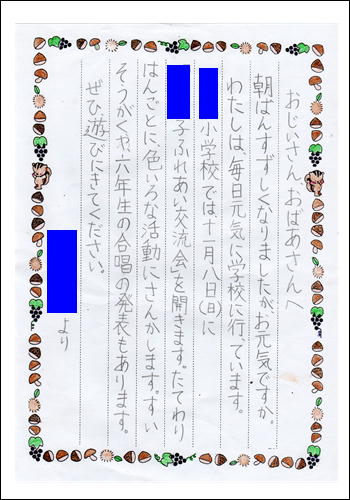 おじいさん、おばあさんへ
朝ばんすずしくなりましたがお元気ですか。
わたしは、毎日元気に学校に行っています。
小学校では十一月八日(日)に
子ふれあい交流会」を開きます。たてわり
はんごとに、色いろな活動にさんかします。すい
そうがくや、六年生の合唱の発表もあります。
ぜひ遊びにきてください。
より